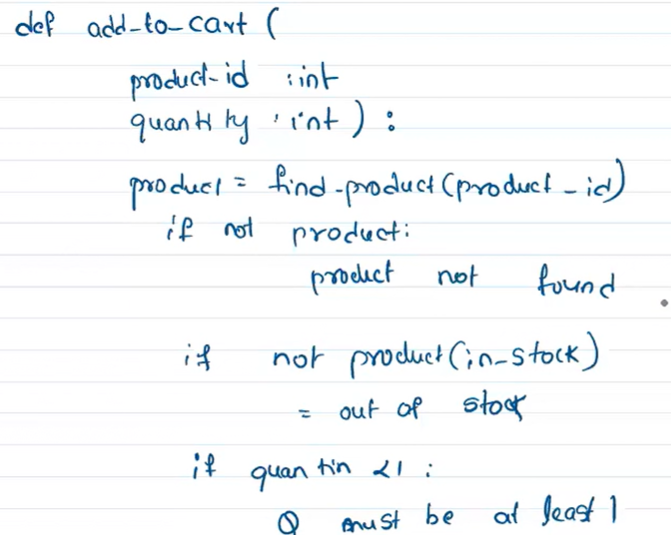 def add-to-cart (
product-id : int
quantity : int ) :
product = find-product(product_id)
if not product:
product not found
if not product(in-stock)
= out of stock
if quantin <1 :
Q must be at least 1